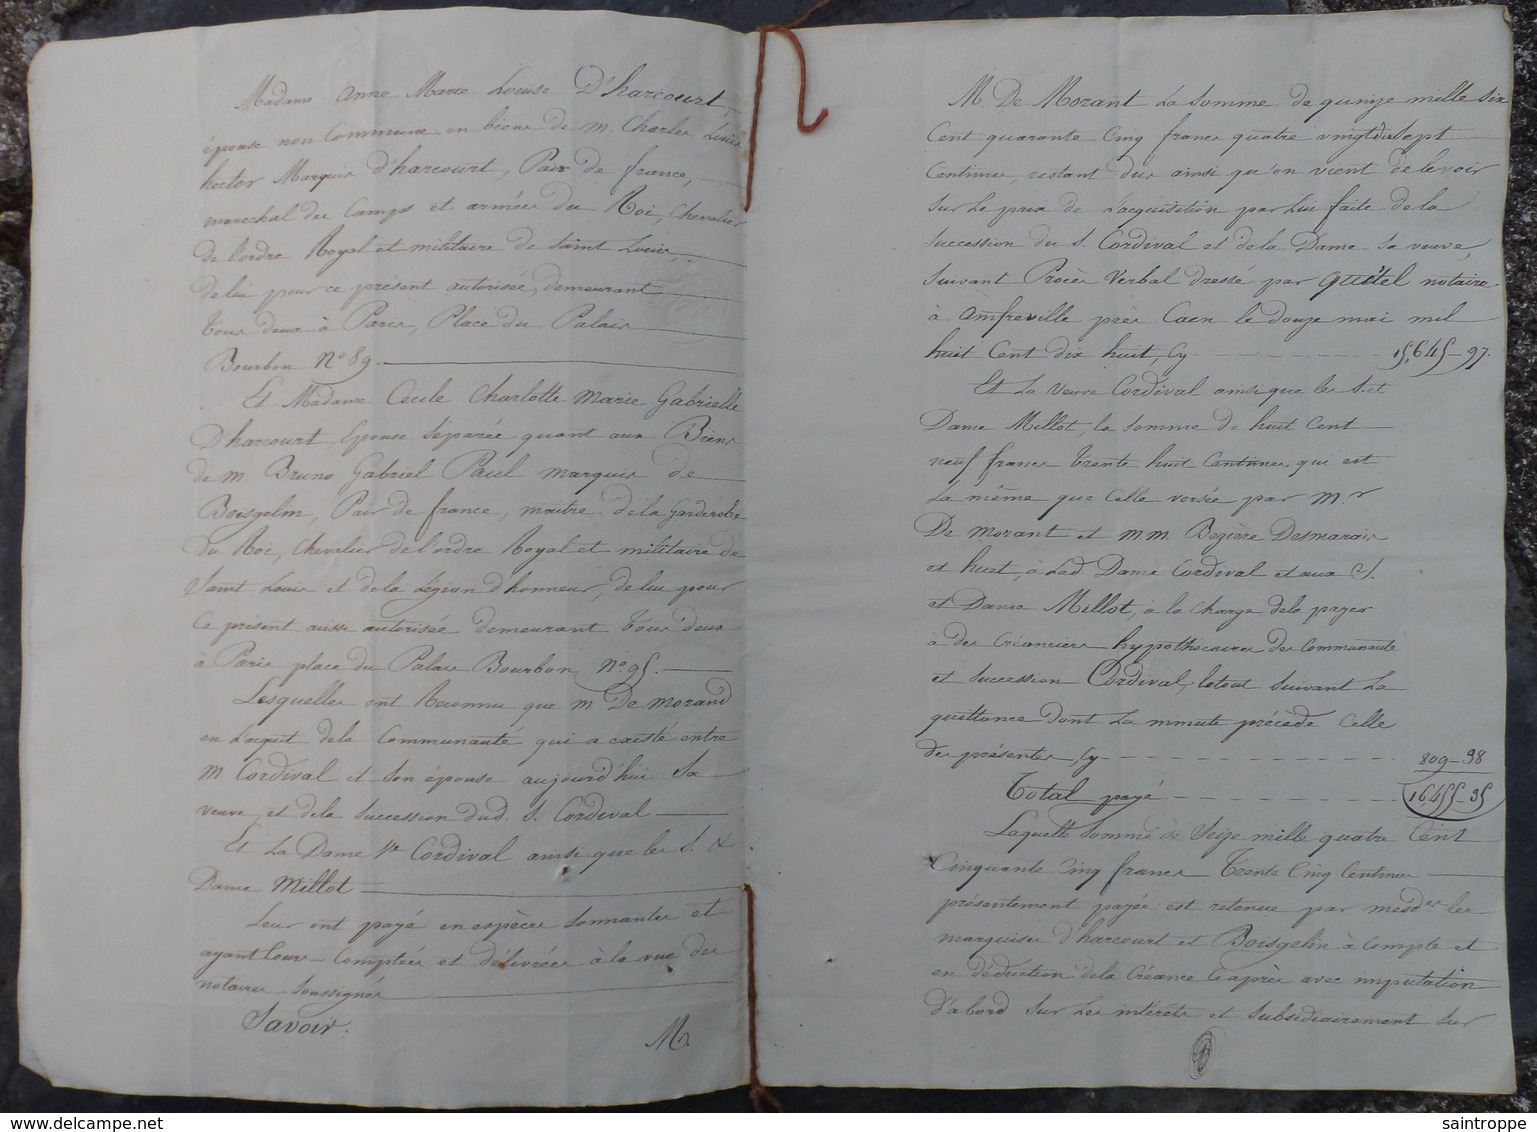 Madame Anne Marie Louise D'harcourt
épouse non Commune en biens de M. Charles Louis
hector Marquis d'harcourt, Pair de france,
marechal des Camps et armées du Roi, Chevalier
de l'ordre Royal et militaire de Saint Louis,
de lui pour ce présent autorisée, demeurant
tous deux à Paris, Place du Palais
Bourbon N° 89.
Et Madame Cécile Charlotte Marie Gabrielle
D'harcourt, Epouse Séparée quant aux Biens
de m Bruno Gabriel Paul marquis de
Boisgelin, Pair de france, maitre de la Garderobe
du Roi, Chevalier de l'ordre Royal et militaire de
Saint Louis et de la Légion d'honneur, de lui pour
Ce présent aussi autorisée demeurant tous deux
à Paris place du Palais Bourbon N° 95.
Lesquelles ont Reconnu que M. De Morand
en l'acquit de la Communauté qui a existé entre
M Cordival et Son épouse aujourd'hui Sa
veuve, et de la Succession dud. S. Cordeval
Et La Dame Ve Cordival ainsi que les S. &
Dame Millot
Leur ont payé en espèces Sonnantes et
ayant Cours Comptées et délivrées à la vue des
notaires Soussignés
Savoir.
M.
M. De Morant La Somme de quinze mille Six
Cent quarante Cinq francs quatre vingt dix Sept
Centimes, restant dus ainsi qu'on vient de le voir
Sur Le prix de l'acquisition par Lui faite de la
Succession du S. Cordival et de la Dame Sa veuve,
Suivant Procès Verbal Dressé par Quétel notaire
à amfreville près Caen le douze mai mil
huit Cent dix huit, Cy 15,645-97.
Et La Veuve Cordival ainsi que les S. et
Dame Millot, la Somme de huit Cent
neuf francs trente huit Centimes, qui est
La même que Celle versée par M.r
De Morant et MM. Bezière Desmarais
et huet, à Lad. Dame Cordival et aux S.
et Dame Millot, à la charge de la payer
à des Créanciers hypothécaires des Communauté
et Succession Cordival, le tout Suivant La
quittance dont La minute précède Celle
des présentes, Cy 809-38
Total payé 16,455-35
Laquelle Somme de Seize mille quatre Cent
Cinquante Cinq francs Trente Cinq Centimes
présentement payée est retenue par mesdes les
marquises d'harcourt et Boisgelin à Compte et
en déduction de la Créance Ciaprès avec imputation
D'abord Sur Les intérêts et Subsidiairement Sur
saintroppe